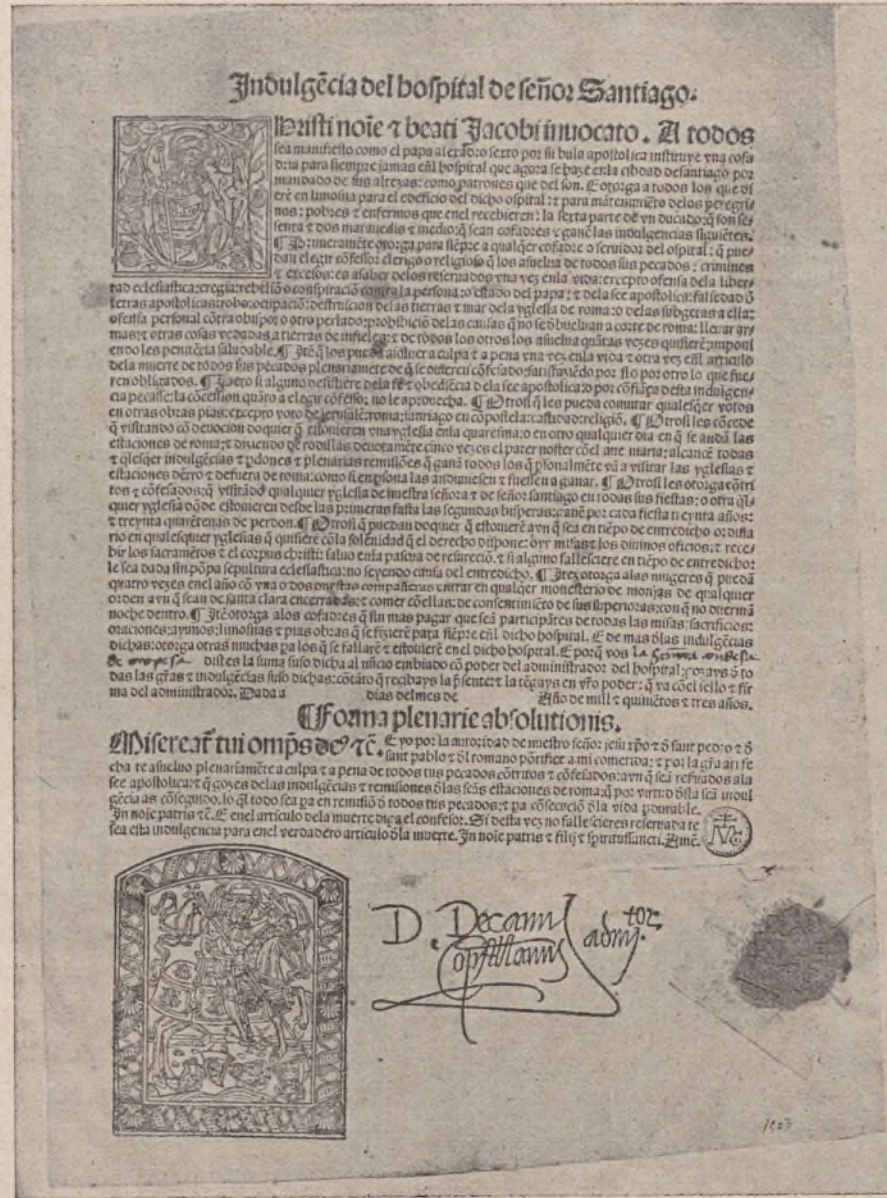 Indulgẽcia del hospital de señor Santiago.
Christi noĩe ⁊ beati Jacobi inuocato. A todos
sea manifiesto como el papa alexãdro sexto por su bula apostolica instituye vna cofa-
dria para siempre jamas enl hospital que agora se haze enla cibdad de santiago por
mandado de sus altezas: como patrones que del son. E otorga a todos los que di
erẽ en limosna para el edeficio del dicho ospital: ⁊ para mãtenimiẽto delos peregri-
nos: pobres ⁊ enfermos que enel recebieren: la sexta parte de vn ducado: q̃ son se-
senta ⁊ dos marauedis ⁊ medio: q̃ sean cofadres ⁊ ganẽ las indulgencias siguiẽtes.
¶ Primeramẽte otorga para siẽpre a qualq̃er cofadre o seruidor del ospital: q̃ pue-
dan elegir cõfessor clerigo o religioso q̃ los asuelua de todos sus pecados: crimines
⁊ excesos: es asaber delos reseruados vna vez enla vida: excepto ofensa dela liber-
tad eclesiastica: eregia: rebeliõ o conspiraciõ contra la persona: o estado del papa: ⁊ dela see apostolica: falsedad õ
letras apostolicas: robo: ocupaciõ: destruicion delas tierras ⁊ mar dela yglesia de roma: o delas subgetas a ella:
ofensa personal cõtra obispo: o otro perlado: prohibiciõ delas causas q̃ no se õbueluan a corte de roma: lleuar ar-
mas: ⁊ otras cosas vedadas a tierras de infieles: ⁊ de todos los otros los asuelua quãtas vezes quisierẽ: imponi
endo les penitẽcia saludable. ¶ Itẽ q̃ los pueda asoluer a culpa ⁊ a pena vna vez enla vida ⁊ otra vez enl articulo
dela muerte de todos sus pecados plenariamẽte de q̃ se ouieren cõfesado: satisfaziẽdo por si o por otro lo que fue-
ren obligados. ¶ Pero si alguno desistiere dela fe ⁊ obediẽcia dela see apostolica: o por cõfiãça desta indulgen-
cia pecasse: la cõcession quãto a elegir cõfessor: no le aprouecha. ¶ Otrosi q̃ les pueda comutar qualesq̃er votos
en otras obras pias: excepto voto de jerusalẽ: roma: santiago en cõpostela: castidad: religiõ. ¶ Otrosi les cõcede
q̃ visitando cõ deuocion doquier q̃ estouieren vna yglesia enla quaresma: o en otro qualquier dia en q̃ se andã las
estaciones de roma: ⁊ diziendo de rodillas deuotamẽte cinco vezes el pater noster cõel aue maria: alcancẽ todas
⁊ q̃lesq̃er indulgẽcias ⁊ p̃dones ⁊ plenarias remisiões q̃ ganã todos los q̃ p̃sonalmẽte vã a visitar las yglesias ⁊
estaciones dẽtro ⁊ defuera de roma: como si en p̃sona las anduuiesen ⁊ fuessen a ganar. ¶ Otrosi les otorga cõtri
tos ⁊ cõfesados: q̃ visitãdo qualquier yglesia de nuestra señora ⁊ de señor santiago en todas sus fiestas: o otra q̃l-
quier yglesia dõde estouieren desde las primeras fasta las segundas bisperas: ganẽ por cada fiesta treynta años:
⁊ treynta quarẽtenas de perdon. ¶ Otrosi q̃ puedan doquier q̃ estouierẽ avn q̃ sea en tiẽpo de entredicho ordina
rio en qualesquier yglesias q̃ quisierẽ cõla solẽnidad q̃ el derecho dispone: oyr missas ⁊ los diuinos oficios: ⁊ rece-
bir los sacramẽtos ⁊ el corpus christi: saluo enla pascua de resureciõ. ⁊ si alguno fallesciere en tiẽpo de entredicho:
le sea dada sin põpa sepultura eclesiastica: no seyendo causa del entredicho. ¶ Itẽ otorga alas mugeres q̃ puedã
quatro vezes enel año cõ vna o dos onestas compañeras entrar en qualq̃er monesterio de monjas de qualquier
orden avn q̃ sean de santa clara encerradas: ⁊ comer cõellas: de consentimiẽto de sus superioras: con q̃ no duermã
noche dentro. ¶ Itẽ otorga alos cofadres q̃ sin mas pagar que seã participãtes de todas las misas: sacrificios:
oraciones: ayunos: limosnas ⁊ pias obras q̃ se fizierẽ para siẽpre enl dicho hospital. E de mas õlas indulgẽcias
dichas: otorga otras muchas pa los q̃ se fallarẽ ⁊ estouierẽ en el dicho hospital. E porq̃ vos la
de oropesa distes la suma suso dicha al nũcio embiado cõ poder del administrador del hospital: gozays õ to
das las gr̃as ⁊ indulgẽcias suso dichas: cõtãto q̃ recibays la p̃sente: ⁊ la tẽgays en vr̃o poder: q̃ va cõel sello ⁊ fir
ma del administrador. Dada a dias del mes de Año de mill ⁊ quiniẽtos ⁊ tres años.
¶ Forma plenarie absolutionis.
Misereat̃ tui omp̃s de⁹ ⁊c̃. E yo por la autoridad de nuestro señor jesu xp̃o ⁊ õ sant pedro ⁊ õ
sant pablo ⁊ õl romano põtifice a mi cometida: ⁊ por la gr̃a a ti fe
cha te asueluo plenariamẽte a culpa ⁊ a pena de todos tus pecados cõtritos ⁊ cõfesados: avn q̃ seã reseruados ala
see apostolica: ⁊ q̃ gozes delas indulgẽcias ⁊ remisiones õlas seãs estaciones de roma: q̃ por virtud õsta seã indul
gẽcias cõsegundo. lo q̃l todo sea pa en remisiõ õ todos tus pecados: ⁊ pa cõsecuciõ õla vida p̃durable.
In noĩe patris ⁊c̃. E enel articulo dela muerte diga el confesor. Si desta vez no fallescieres reseruada te
sea esta indulgencia para enel verdadero articulo õla muerte. In noĩe patris ⁊ filij ⁊ spiritussancti. Amẽ.
D. Decanus
Cop̃stellanus admj.tor
1503